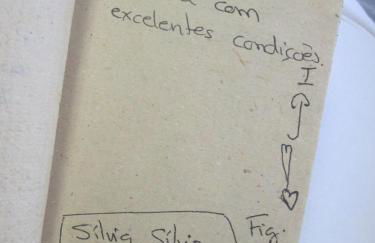 com
excelentes condições.
I
Silvia Silvia
Fig.